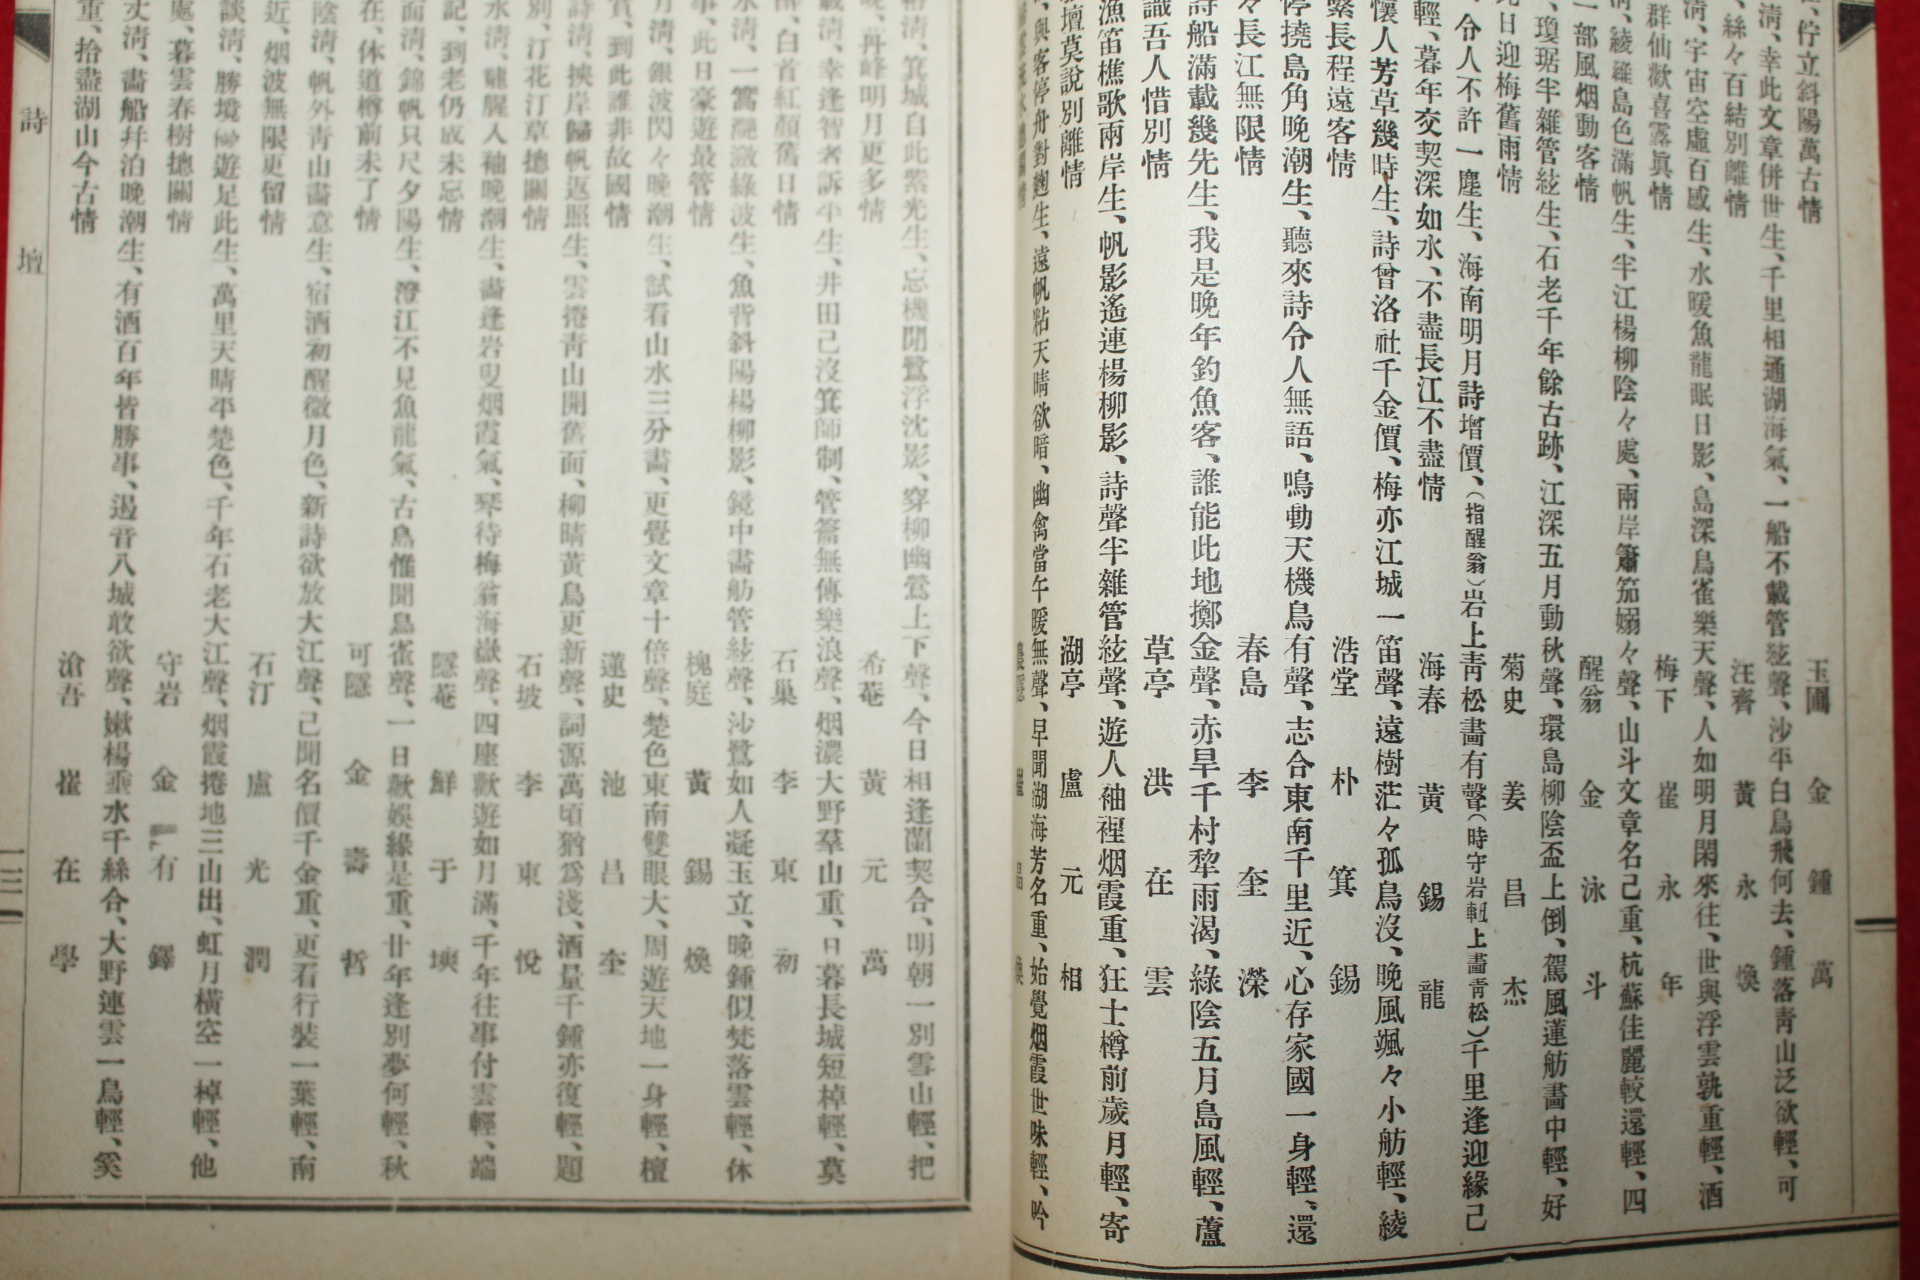 玉圃 金鍾萬
清、幸此文章併世生、千里相通湖海氣、一船不載管絃聲、沙平白鳥飛何去、鍾落青山泛欲輕、可
佇立斜陽萬古情
汪齊 黃永煥
清、宇宙空虛百感生、水暖魚龍眠日影、島深鳥雀樂天聲、人如明月閑來往、世與浮雲孰重輕、酒
絲々百結別離情
梅下 崔永年
清、綾羅島色滿帆生、半江楊柳陰々處、兩岸簫笳嫋々聲、山斗文章名己重、杭蘇佳麗較還輕、四
群仙歡喜露眞情
醒翁 金泳斗
瓊琚半雜管絃生、石老千年餘古跡、江深五月動秋聲、環島柳陰盃上倒、駕風蓮舫畵中輕、好
一部風烟動客情
菊史 姜昌杰
令人不許一塵生、海南明月詩增價、(指醒翁)岩上靑松畵有聲(時守岩輒上畵靑松)千里逢迎緣己
日迎梅舊雨情
輕、暮年交契深如水、不盡長江不盡情
海春 黃錫龍
懷人芳草幾時生、詩曾洛社千金價、梅亦江城一笛聲、遠樹茫々孤鳥沒、晚風颯々小舫輕、綾
繫長程遠客情
浩堂 朴箕錫
停撓島角晚潮生、聽來詩令人無語、鳴動天機鳥有聲、志合東南千里近、心存家國一身輕、還
々長江無限情
春島 李奎濚
詩船滿載幾先生、我是晚年釣魚客、誰能此地擲金聲、亦旱千村犂雨渴、綠陰五月島風輕、蘆
識吾人惜別情
草亭 洪在雲
漁笛樵歌兩岸生、帆影遙連楊柳影、詩聲半雜管絃聲、遊人袖裡烟霞重、狂士樽前歲月輕、寄
壇莫說別離情
湖亭 盧元相
與客停舟對麯生、遠帆粘天晴欲暗、幽禽當午暖無聲、早聞湖海芳名重、始覺烟霞世味輕、吟
清、箕城自此紫光生、忘機閒鷺浮沈影、穿柳幽鶯上下聲、今日相逢蘭契合、明朝一別雪山輕、把
晚、丹峰明月更多情
希菴 黃元萬
清、幸逢智者訴半生、井田己沒箕師制、管籥無傳樂浪聲、烟濃大野羣山重、日暮長城短棹輕、莫
辭、白首紅顏舊日情
石巢 李東初
清、一篙灔瀲綠波生、魚背斜陽楊柳影、鏡中畵舫管絃聲、沙鷺如人凝玉立、晚鍾似梵落雲輕、休
事、此日豪遊最管情
槐庭 黃錫煥
清、銀波閃々晚潮生、試看山水三分畵、更覺文章十倍聲、楚色東南雙眼大、周遊天地一身輕、檀
賞、到此誰非故國情
蓮史 池昌奎
清、挾岸歸帆返照生、雲捲靑山開舊面、柳晴黃鳥更新聲、詞源萬頃猶爲淺、酒量千鍾亦復輕、題
別、汀花汀草摠關情
石坡 李東悅
清、龍腥入袖晚潮生、畵逢岩叟烟霞氣、琴待梅翁海嶽聲、四座歡遊如月滿、千年往事付雲輕、端
記、到老仍成未忘情
隱菴 鮮于
清、錦帆只尺夕陽生、澄江不見魚龍氣、古島惟聞鳥雀聲、一日歡娛緣是重、廿年逢別夢何輕、秋
在、休道樽前未了情
可隱 金壽哲
清、帆外靑山畵意生、宿酒初醒微月色、新詩欲放大江聲、己聞名價千金重、更看行裝一葉輕、南
近、烟波無限更留情
石汀 盧光潤
談清、勝境遊足此生、萬里天晴平楚色、千年石老大江聲、烟霞捲地三山出、虹月橫空一棹輕、他
處、暮雲春樹摠關情
守岩 金有鐸
清、畵船幷泊晚潮生、有酒百年皆勝事、遏音八城敢欲聲、嫩楊垂水千絲合、大野連雲一鳥輕、笑
重、拾盡湖山今古情
滄吾 崔在學
詩壇
一三